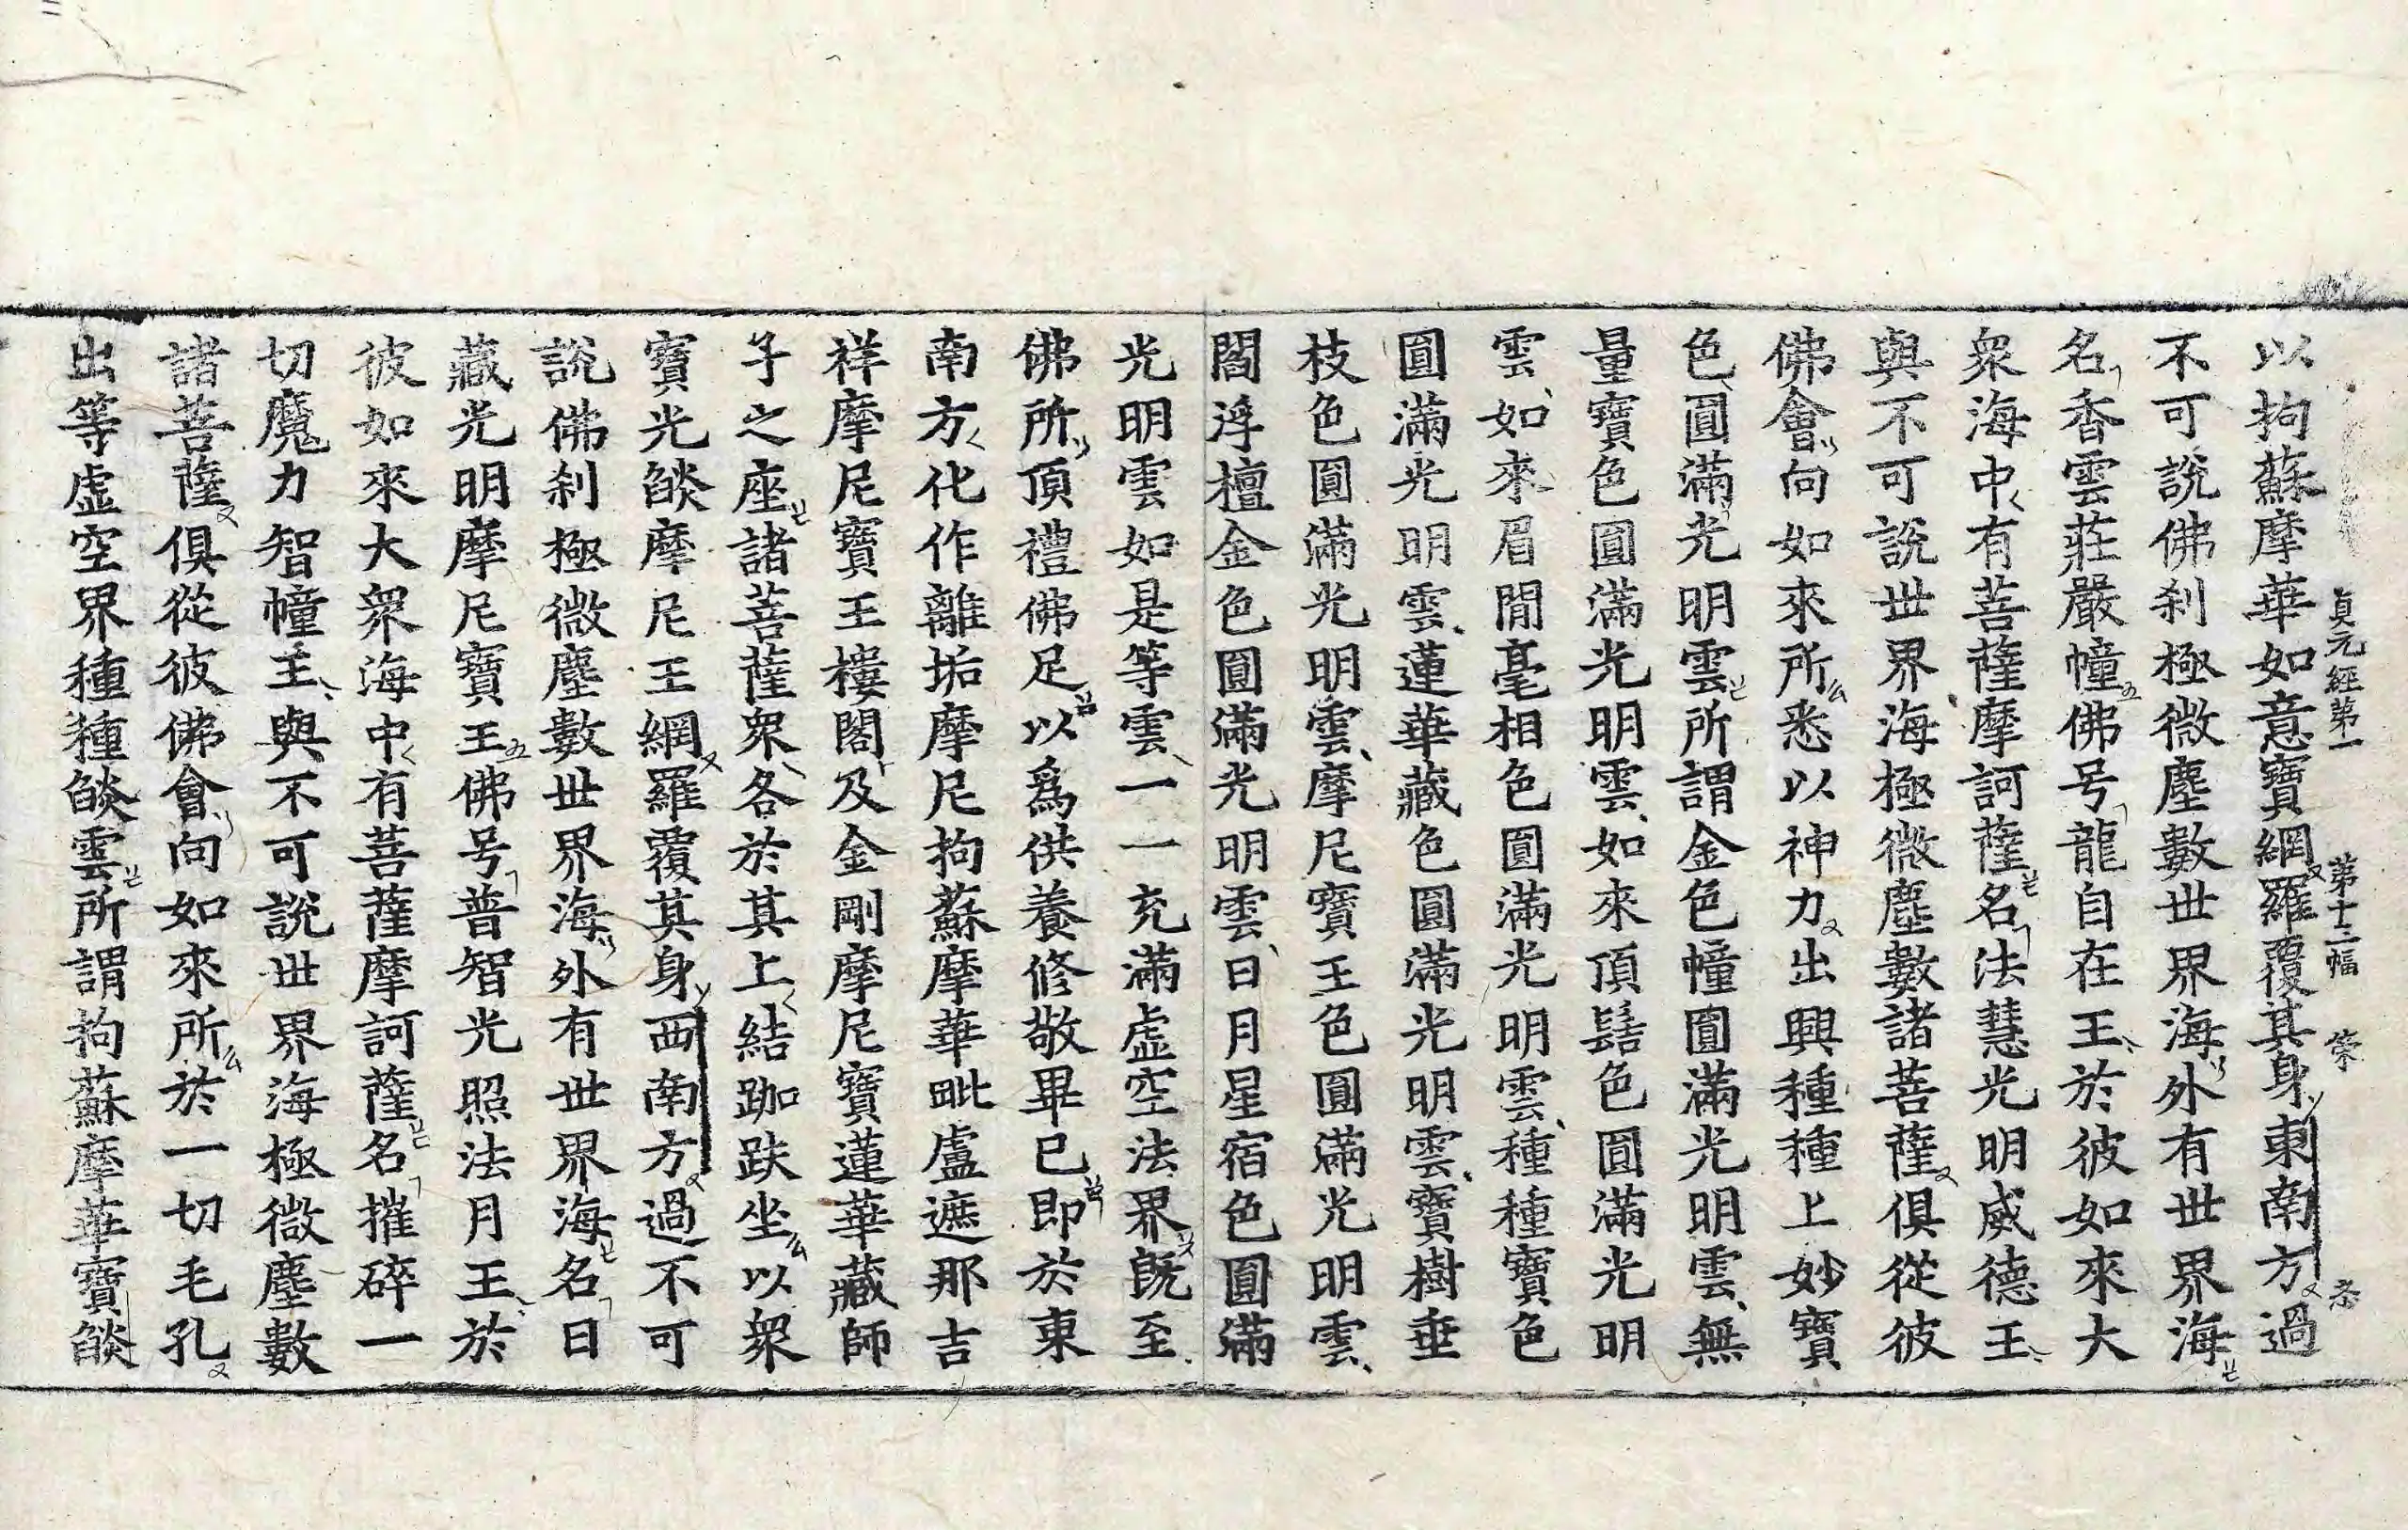 以拘蘇摩華如意寶網羅覆其身東南方過
貞元經第一 第十三幅
不可說佛刹極微塵數世界海外有世界海
名香雲莊嚴幢佛号龍自在王於彼如來大
衆海中有菩薩摩訶薩名法慧光明威德王
與不可說世界海極微塵數諸菩薩俱從彼
佛會向如來所悉以神力出興種種上妙寶
色圓滿光明雲所謂金色幢圓滿光明雲無
量寶色圓滿光明雲如來頂髻色圓滿光明
雲如來眉間毫相色圓滿光明雲種種寶色
圓滿光明雲蓮華藏色圓滿光明雲寶樹垂
枝色圓滿光明雲摩尼寶王色圓滿光明雲
閻浮檀金色圓滿光明雲日月星宿色圓滿
光明雲如是等雲一一充滿虛空法界旣至
佛所頂禮佛足以爲供養修敬畢已即於東
南方化作離垢摩尼拘蘇摩華毗盧遮那吉
祥摩尼寶王樓閣及金剛摩尼寶蓮華藏師
子之座諸菩薩衆各於其上結跏趺坐以衆
寶光燄摩尼王網羅覆其身西南方過不可
說佛刹極微塵數世界海外有世界海名日
藏光明摩尼寶王佛号普智光照法月王於
彼如來大衆海中有菩薩摩訶薩名摧碎一
切魔力智幢王與不可說世界海極微塵數
諸菩薩俱從彼佛會向如來所於一切毛孔
出等虛空界種種燄雲所謂拘蘇摩華寶燄